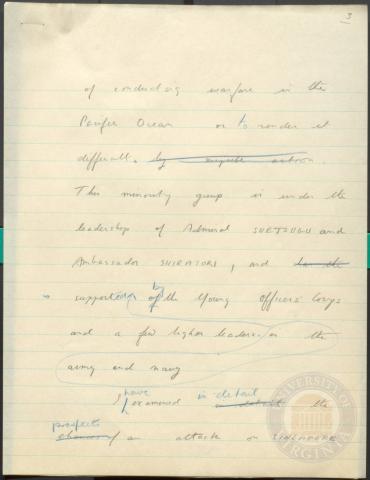 3
of conducting warfare in the
Pacific Ocean or to render it
difficult. by
This minority group is under the
leadership of Admiral SUETSUGU and
Ambassador SHIRATORI, and
supported by of the Young Officers Corps
and a few higher leaders in the
army and navy
I have examined in detail in detail the
prospects chances of an attack on SINGAPORE
UNIVERSITY OF VIRGINIA